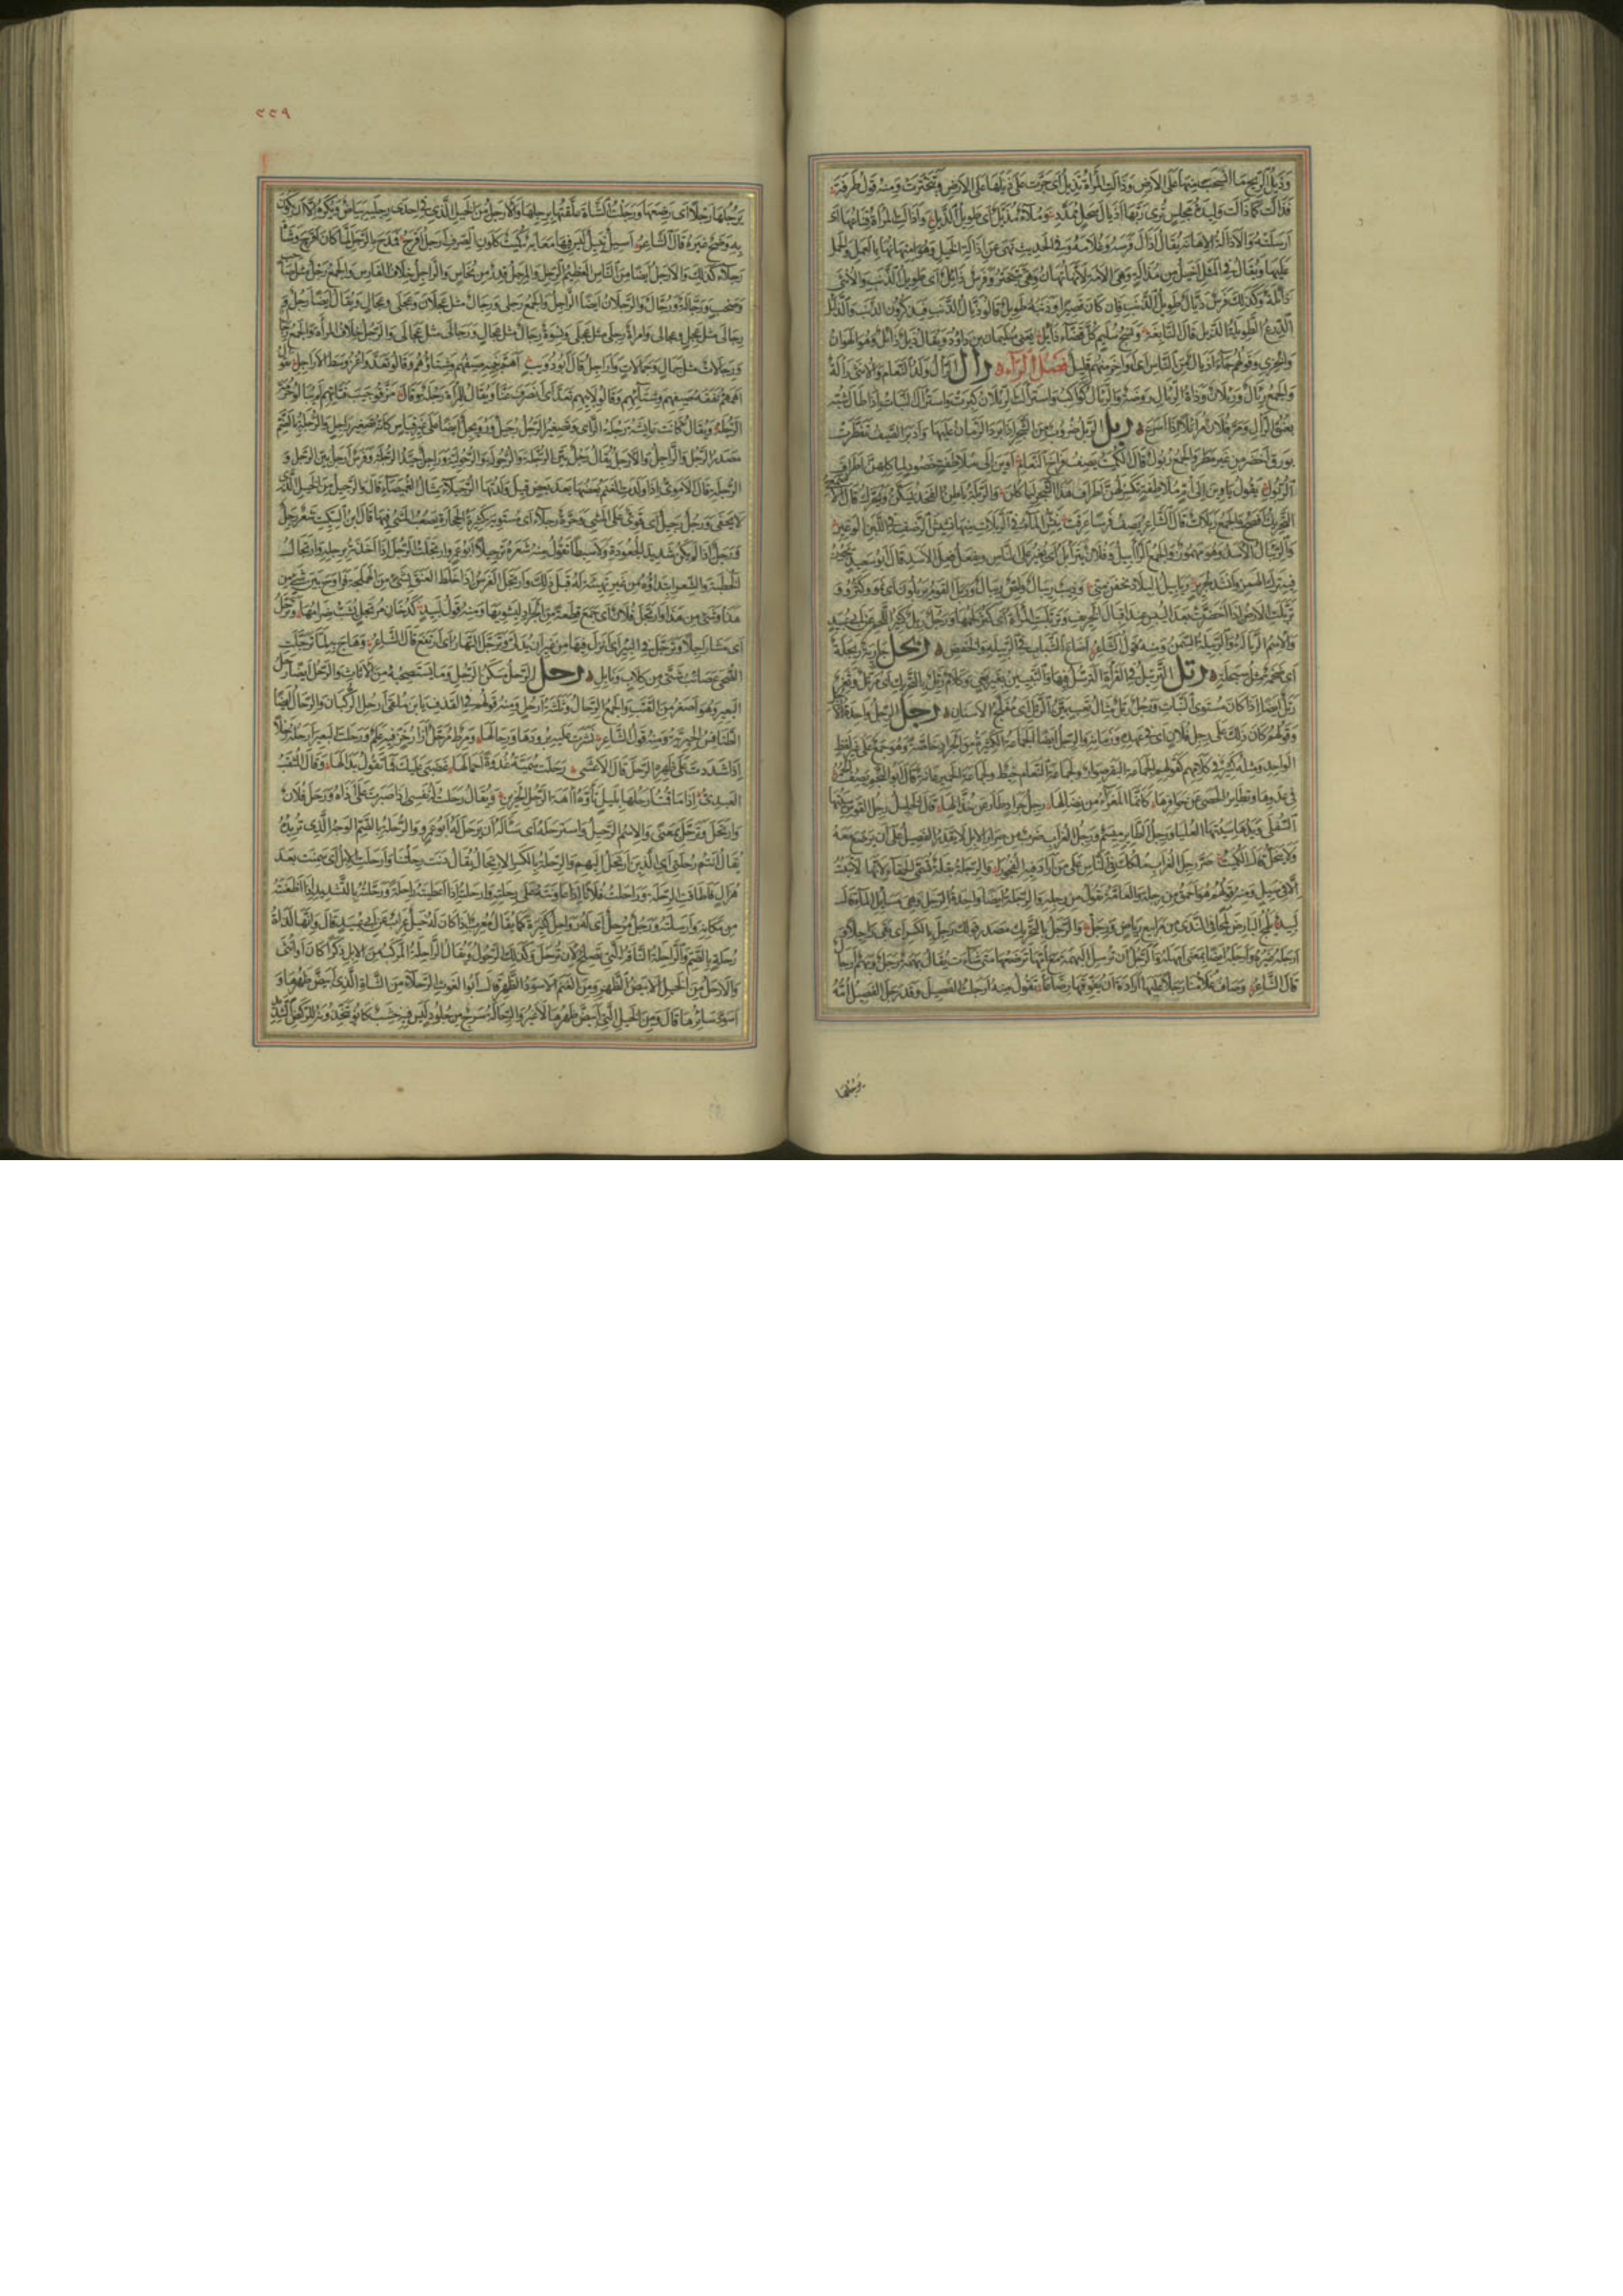 وَذَيْلُ الرِّيحِ مَا انْسَحَبَ مِنْهَا عَلَى الْأَرْضِ وَذَالَتِ الْمَرْأَةُ تَذِيلُ أَيْ جَرَّتْ عَلَى ذَيْلَهَا عَلَى الْأَرْضِ وَتَبَخْتَرَتْ وَمِنْهُ قَوْلُ طَرَفَةَ
فَذَالَتْ كَمَا ذَالَتْ وَلِيدَةُ مَجْلِسٍ تُرِي رَبَّهَا أَذْيَالَ سَحْلٍ مُمَدَّدِ وَمُلَاءٌ مُذَيَّلٌ أَيْ طَوِيلُ الذَّيْلِ وَأَذَالَتِ الْمَرْأَةُ قِنَاعَهَا أَيْ
أَرْسَلَتْهُ وَالْإِذَالَةُ الْإِهَانَةُ يُقَالُ أَذَالَ فَرَسَهُ وَغُلَامَهُ وَفِي الْحَدِيثِ نَهَى عَنْ إِذَالَةِ الْخَيْلِ وَهُوَ امْتِهَانُهَا بِالْعَمَلِ وَالْحَمْلِ
عَلَيْهَا وَيُقَالُ فِي الْمَثَلِ أَخْيَلُ مِنْ مُذَالَةٍ وَهِيَ الْأَمَةُ لِأَنَّهَا تُهَانُ وَهِيَ تَتَبَخْتَرُ وَفَرَسٌ ذَائِلٌ أَيْ طَوِيلُ الذَّنَبِ وَالْأُنْثَى
ذَائِلَةٌ وَكَذَلِكَ فَرَسٌ ذَيَّالٌ طَوِيلُ الذَّنَبِ فَإِنْ كَانَ قَصِيرًا وَذَنَبُهُ طَوِيلٌ قَالُوا ذَيَّالُ الذَّنَبِ فَيَذْكُرُونَ الذَّنَبَ وَالذَّائِلُ
الدِّرْعُ الطَّوِيلَةُ الذَّيْلِ قَالَ النَّابِغَةُ وَنَسْجُ سُلَيْمٍ كُلَّ قَضَّاءَ ذَائِلِ يَعْنِي سُلَيْمَانَ بْنَ دَاوُدَ وَيُقَالُ ذَيْلٌ ذَائِلٌ وَهُوَ الْهَوَانُ
وَالْخِزْيُ وَقَوْلُهُمْ جَاءَ أَذْيَالٌ مِنَ النَّاسِ أَيْ أَوَاخِرُ مِنْهُمْ قَلِيلٌ فَصْلُ الرَّاءِ رأل الرَّأْلُ وَلَدُ النَّعَامِ وَالْأُنْثَى رَأْلَةٌ
وَالْجَمْعُ رِئَالٌ وَرِئْلَانٌ وَذَاتُ الرِّئَالِ رَوْضَةٌ وَالرِّئَالُ كَوَاكِبُ وَاسْتَرْأَلَتِ الرِّئْلَانُ كَبِرَتْ وَاسْتَرْأَلَ النَّبَاتُ إِذَا طَالَ شُبِّهَ
بِعُنُقِ الرَّأْلِ وَمَرَّ فُلَانٌ مُرَائِلًا إِذَا أَسْرَعَ ربل الرَّبْلُ ضُرُوبٌ مِنَ الشَّجَرِ إِذَا بَرَدَ الزَّمَانُ عَلَيْهَا وَأَدْبَرَ الصَّيْفُ تَفَطَّرَتْ
بِوَرَقٍ أَخْضَرَ مِنْ غَيْرِ مَطَرٍ وَالْجَمْعُ رُبُولٌ قَالَ الْكُمَيْتُ يَصِفُ فِرَاخَ النَّعَامِ أَوَيْنَ إِلَى مُلَاطِفَةٍ خَضُودٍ لِمَأْكَلِهِنَّ أَطْرَافَ
الرُّبُولِ يَقُولُ يَأْوِينَ إِلَى أُمٍّ مُلَاطِفَةٍ تُكَسِّرُ لَهُنَّ أَطْرَافَ هَذَا الشَّجَرِ لِيَأْكُلْنَ وَالرَّبْلَةُ بَاطِنُ الْفَخِذِ يُسَكَّنُ وَيُحَرَّكُ قَالَ الْأَصْمَعِيُّ
التَّحْرِيكُ أَفْصَحُ وَالْجَمْعُ رَبَلَاتٌ قَالَ الشَّاعِرُ يَصِفُ فَرَسًا عَرِقَتْ يَنِشُّ الْمَاءُ فِي الرَّبَلَاتِ مِنْهَا نَشِيشَ الرَّضْفِ فِي اللَّبَنِ الْوَغِيرِ
وَالرِّئْبَالُ الْأَسَدُ وَهُوَ مَهْمُوزٌ وَالْجَمْعُ الرَّآبِيلُ وَفُلَانٌ يَتَرَأْبَلُ أَيْ يُغِيرُ عَلَى النَّاسِ وَيَفْعَلُ فِعْلَ الْأَسَدِ قَالَ أَبُو سَعِيدٍ
تَرَبَّلَتِ الْأَرْضُ إِذَا اخْضَرَّتْ بَعْدَ الْيُبْسِ عِنْدَ إِقْبَالِ الْخَرِيفِ وَتَرَبَّلَتِ الْمَرْأَةُ أَيْ كَثُرَ لَحْمُهَا وَرَجُلٌ رَبِلٌ كَثِيرُ اللَّحْمِ عَنْ أَبِي عُبَيْدٍ
وَالِاسْمُ الرَّبَالَةُ وَالرَّبِيلَةُ السِّمَنُ وَمِنْهُ قَوْلُ الشَّاعِرِ أَضَاعَ الشَّبَابَ فِي الرَّبِيلَةِ وَالْخَفْضِ ربحل جَارِيَةٌ رِبَحْلَةٌ
أَيْ ضَخْمَةٌ مِثْلُ سِبَحْلَةٍ رتل التَّرْتِيلُ فِي الْقِرَاءَةِ التَّرَسُّلُ فِيهَا وَالتَّبْيِينُ بِغَيْرِ بَغْيٍ وَكَلَامٌ رَتَلٌ بِالتَّحْرِيكِ أَيْ مُرَتَّلٌ وَثَغْرٌ
رَتَلٌ أَيْضًا إِذَا كَانَ مُسْتَوِيَ النَّبَاتِ وَرَجُلٌ رَتِلٌ مِثَالُ تَعِبٍ بَيِّنُ الرَّتَلِ أَيْ مُفَلَّجُ الْأَسْنَانِ رجل الرِّجْلُ وَاحِدَةُ الْأَرْجُلِ
وَقَوْلُهُمْ كَانَ ذَلِكَ عَلَى رِجْلِ فُلَانٍ أَيْ فِي عَهْدِهِ وَزَمَانِهِ وَالرِّجْلُ أَيْضًا الْجَمَاعَةُ الْكَثِيرَةُ مِنَ الْجَرَادِ خَاصَّةً وَهُوَ جَمْعٌ عَلَى غَيْرِ لَفْظِ
الْوَاحِدِ وَمِثْلُهُ كَثِيرٌ فِي كَلَامِهِمْ كَقَوْلِهِمْ لِجَمَاعَةِ الْبَقَرِ صُوَارٌ وَلِجَمَاعَةِ النَّعَامِ خِيطٌ وَلِجَمَاعَةِ الْحَمِيرِ عَانَةٌ قَالَ أَبُو النَّجْمِ يَصِفُ الْحُمُرَ
فِي عَدْوِهَا وَتَطَايُرِ الْحَصَى عَنْ حَوَافِرِهَا كَأَنَّمَا الْمَعْزَاءُ مِنْ نِضَالِهَا رِجْلُ جَرَادٍ طَارَ عَنْ خُذَّالِهَا قَالَ الْخَلِيلُ رِجْلُ الْقَوْسِ سِيَتُهَا
السُّفْلَى وَيَدُهَا سِيَتُهَا الْعُلْيَا وَرِجْلُ الطَّائِرِ مِيسَمٌ وَرِجْلُ الْغُرَابِ ضَرْبٌ مِنْ صَرِّ الْإِبِلِ لَا يَقْدِرُ الْفَصِيلُ عَلَى أَنْ يَرْضَعَ مَعَهُ
وَلَا يَنْحَلُّ قَالَ الْكُمَيْتُ صَرَّ رِجْلَ الْغُرَابِ مُلْكُكَ فِي النَّاسِ عَلَى مَنْ أَرَادَ فِيهِ الْفُجُورَا وَالرِّجْلَةُ بَقْلَةٌ تُسَمَّى الْحَمْقَاءَ لِأَنَّهَا لَا تَنْبُتُ
إِلَّا فِي مَسِيلٍ وَمِنْهُ قَوْلُهُمْ هُوَ أَحْمَقُ مِنْ رِجْلَةٍ وَالْعَامَّةُ تَقُولُ مِنْ رِجْلِهِ وَالرِّجْلَةُ أَيْضًا وَاحِدَةُ الرِّجَلِ وَهِيَ مَسَايِلُ الْمَاءِ قَالَ
لَبِيدٌ يَلْمُجُ الْبَارِضَ لَمْجًا فِي النَّدَى مِنْ مَرَابِيعِ رِيَاضٍ وَرِجَلْ وَالرَّجَلُ بِالتَّحْرِيكِ مَصْدَرُ قَوْلِكَ رَجِلَ بِالْكَسْرِ أَيْ بَقِيَ رَاجِلًا وَ
أَرْجَلَهُ غَيْرُهُ وَأَرْجَلَهُ أَيْضًا بِمَعْنَى أَمْهَلَهُ وَالرَّجَلُ أَنْ تُرْسِلَ الْبَهْمَةَ مَعَ أُمِّهَا تَرْضَعُهَا مَتَى شَاءَتْ يُقَالُ بَهْمَةٌ رَجَلٌ وَبَهْمٌ أَرْجَالٌ
قَالَ الشَّاعِرُ وَصَافَ غُلَامُنَا رَجَلًا عَلَيْهَا إِرَادَةَ أَنْ يُفَوِّقَهَا رَضَاعَا تَقُولُ مِنْهُ أَرْجَلْتُ الْفَصِيلَ وَقَدْ رَجَلَ الْفَصِيلُ أُمَّهُ
يَرْجُلُهَا
٢٢٩
يَرْجُلُهَا رَجْلًا أَيْ رَضِعَهَا وَرَجَلْتُ الشَّاةَ عَلَّقْتُهَا بِرِجْلِهَا وَالْأَرْجَلُ مِنَ الْخَيْلِ الَّذِي فِي إِحْدَى رِجْلَيْهِ بَيَاضٌ وَيُكْرَهُ إِلَّا أَنْ يَكُونَ
بِهِ وَضَحٌ غَيْرُهُ قَالَ الشَّاعِرُ أَسِيلٌ نَبِيلٌ لَيْسَ فِيهِ مَعَابَةٌ كُمَيْتٌ كَلَوْنِ الصِّرْفِ أَرْجَلُ أَقْرَحُ فَمَدَحَ بِالرَّجَلِ لَمَّا كَانَ أَقْرَحَ وَشَاةٌ
رَجْلَاءُ كَذَلِكَ وَالْأَرْجَلُ أَيْضًا مِنَ النَّاسِ الْعَظِيمُ الرِّجْلِ وَالْمِرْجَلُ قِدْرٌ مِنْ نُحَاسٍ وَالرَّاجِلُ خِلَافُ الْفَارِسِ وَالْجَمْعُ رَجْلٌ مِثْلُ صَاحِبٍ
وَصَحْبٍ وَرَجَّالَةٌ وَرُجَّالٌ وَالرَّجْلَانُ أَيْضًا الرَّاجِلُ وَالْجَمْعُ رَجْلَى وَرِجَالٌ مِثْلُ عَجْلَانَ وَعَجْلَى وَعِجَالٍ وَيُقَالُ أَيْضًا رَجِلٌ وَ
رَجَالَى مِثْلُ عَجِلٍ وَعَجَالَى وَامْرَأَةٌ رَجْلَى مِثْلُ عَجْلَى وَنِسْوَةٌ رِجَالٌ مِثْلُ عِجَالٍ وَرَجَالَى مِثْلُ عَجَالَى وَالرَّجُلُ خِلَافُ الْمَرْأَةِ وَالْجَمْعُ رِجَالٌ
وَرِجَالَاتٌ مِثْلُ جِمَالٍ وَجِمَالَاتٍ وَأَرَاجِلُ قَالَ أَبُو ذُؤَيْبٍ أَهَمَّ بَنِيهِ صَيْفُهُمْ وَشِتَاؤُهُمْ وَقَالُوا تَعَدَّ وَاغْزُ وَسْطَ الْأَرَاجِلِ يَقُولُ
أَهَمَّتْهُمْ نَفَقَةُ صَيْفِهِمْ وَشِتَائِهِمْ وَقَالُوا لِأَبِيهِمْ تَعَدَّ أَيِ انْصَرِفْ عَنَّا وَيُقَالُ لِلْمَرْأَةِ رَجُلَةٌ وَقَالَ مَزَّقُوا جَيْبَ فَتَاتِهِمُ لَمْ يُبَالُوا حُرْمَةَ
الرَّجُلَهْ وَيُقَالُ كَانَتْ عَائِشَةُ رَجُلَةَ الرَّأْيِ وَتَصْغِيرُ الرَّجُلِ رُجَيْلٌ وَرُوَيْجِلٌ أَيْضًا عَلَى غَيْرِ قِيَاسٍ كَأَنَّهُ تَصْغِيرُ رَاجِلٍ وَالرُّجْلَةُ بِالضَّمِّ
مَصْدَرُ الرَّجُلِ وَالرَّاجِلِ وَالْأَرْجَلِ يُقَالُ رَجُلٌ بَيِّنُ الرُّجْلَةِ وَالرُّجُولَةِ وَالرُّجُولِيَّةِ وَرَاجِلٌ جَيِّدُ الرُّجْلَةِ وَفَرَسٌ أَرْجَلُ بَيِّنُ الرَّجَلِ وَ
الرُّجْلَةِ قَالَ الْأُمَوِيُّ إِذَا وَلَدَتِ الْغَنَمُ بَعْضُهَا بَعْدَ بَعْضٍ قِيلَ وَلَّدْتُهَا الرُّجَيْلَاءَ مِثَالُ الْغُمَيْصَاءِ قَالَ وَالرَّجِيلُ مِنَ الْخَيْلِ الَّذِي
لَا يَحْفَى وَرَجُلٌ رَجِيلٌ أَيْ قَوِيٌّ عَلَى الْمَشْيِ وَحَرَّةٌ رَجْلَاءُ أَيْ مُسْتَوِيَةٌ كَثِيرَةُ الْحِجَارَةِ يَصْعُبُ الْمَشْيُ فِيهَا قَالَ ابْنُ السِّكِّيتِ شَعَرٌ رَجِلٌ
وَرَجَلٌ إِذَا لَمْ يَكُنْ شَدِيدَ الْجُعُودَةِ وَلَا سَبِطًا تَقُولُ مِنْهُ شَعَرَهُ تَرْجِيلًا أَبُو عَمْرٍو ارْتَجَلْتُ الرَّجُلَ إِذَا أَخَذْتَهُ بِرِجْلِهِ وَارْتِجَالُ
الْخُطْبَةِ وَالشِّعْرِ ابْتِدَاؤُهُ مِنْ غَيْرِ تَهْيِئَةٍ لَهُ قَبْلَ ذَلِكَ وَارْتَجَلَ الْفَرَسُ إِذَا خَلَطَ الْعَنَقَ بِشَيْءٍ مِنَ الْهَمْلَجَةِ فَرَاوَحَ بَيْنَ شَيْءٍ مِنْ
هَذَا وَشَيْءٍ مِنْ هَذَا وَارْتَجَلَ فُلَانٌ أَيْ جَمَعَ قِطْعَةً مِنَ الْجَرَادِ لِيَشْوِيَهَا وَمِنْهُ قَوْلُ لَبِيدٍ كَدُخَانِ مُرْتَجِلٍ يُشَبُّ ضِرَامُهَا وَتَرَجَّلَ
أَيْ مَشَى رَاجِلًا وَتَرَجَّلَ فِي الْبِئْرِ أَيْ نَزَلَ فِيهَا مِنْ غَيْرِ أَنْ يُدَلَّى وَتَرَجَّلَ النَّهَارُ أَيِ ارْتَفَعَ قَالَ الشَّاعِرُ وَهَاجَ بِهِ لَمَّا تَرَجَّلَتِ
الضُّحَى عَصَائِبُ شَتَّى مِنْ كِلَابٍ وَنَابِلِ رحل الرَّحْلُ مَسْكَنُ الرَّجُلِ وَمَا يَسْتَصْحِبُهُ مِنَ الْأَثَاثِ وَالرَّحْلُ أَيْضًا رَحْلُ
الْبَعِيرِ وَهُوَ أَصْغَرُ مِنَ الْقَتَبِ وَالْجَمْعُ الرِّحَالُ وَثَلَاثَةُ أَرْحُلٍ وَمِنْهُ قَوْلُهُمْ فِي الْقَذْفِ يَا ابْنَ مُلْقَى أَرْحُلِ الرُّكْبَانِ وَالرِّحَالُ أَيْضًا
الطَّنَافِسُ الْحِيرِيَّةُ وَمِنْهُ قَوْلُ الشَّاعِرِ نَشَرَتْ عَلَيْهِ بُرُودَهَا وَرِحَالَهَا وَمِرْطٌ مُرَحَّلٌ إِزَارُ خَزٍّ فِيهِ عَلَمٌ وَرَحَلْتُ الْبَعِيرَ أَرْحَلُهُ رَحْلًا
إِذَا شَدَدْتَ عَلَى ظَهْرِهِ الرَّحْلَ قَالَ الْأَعْشَى رَحَلَتْ سُمَيَّةُ غُدْوَةً أَجْمَالَهَا غَضْبَى عَلَيْكَ فَمَا تَقُولُ بَدَا لَهَا وَقَالَ الْمُثَقِّبُ
الْعَبْدِيُّ إِذَا مَا قُمْتُ أَرْحَلُهَا بِلَيْلٍ تَأَوَّهُ آهَةَ الرَّجُلِ الْحَزِينِ وَيُقَالُ رَحَلْتُ لَهُ نَفْسِي إِذَا صَبَرْتَ عَلَى أَذَاهُ وَرَحَلَ فُلَانٌ
وَارْتَحَلَ وَتَرَحَّلَ بِمَعْنًى وَالِاسْمُ الرَّحِيلُ وَاسْتَرْحَلَهُ أَيْ سَأَلَهُ أَنْ يَرْحَلَ لَهُ أَبُو عَمْرٍو وَالرُّحْلَةُ بِالضَّمِّ الْوَجْهُ الَّذِي تُرِيدُهُ
يُقَالُ أَنْتُمْ رُحْلَتِي أَيِ الَّذِينَ أَرْتَحِلُ إِلَيْهِمْ وَالرِّحْلَةُ بِالْكَسْرِ الِارْتِحَالُ يُقَالُ دَنَتْ رِحْلَتُنَا وَأَرْحَلَتِ الْإِبِلُ أَيْ سَمِنَتْ بَعْدَ
هُزَالٍ فَأَطَاقَتِ الرِّحْلَةَ وَرَاحَلْتُ فُلَانًا إِذَا عَاوَنْتَهُ عَلَى رِحْلَتِهِ وَأَرْحَلْتُهُ إِذَا أَعْطَيْتَهُ رَاحِلَةً وَرَحَّلْتُهُ بِالتَّشْدِيدِ إِذَا أَظْعَنْتَهُ
مِنْ مَكَانِهِ وَأَرْسَلْتَهُ وَرَجُلٌ مُرْحِلٌ أَيْ لَهُ رَوَاحِلُ كَثِيرَةٌ كَمَا يُقَالُ مُعْرِبٌ إِذَا كَانَ لَهُ خَيْلٌ عِرَابٌ عَنْ أَبِي عُبَيْدٍ قَالَ وَإِنَّهَا لَذَاتُ
رُحْلَةٍ بِالضَّمِّ وَالرَّاحِلَةُ النَّاقَةُ الَّتِي تَصْلُحُ لِأَنْ تُرْحَلَ وَكَذَلِكَ الرَّحُولُ وَيُقَالُ الرَّاحِلَةُ الْمَرْكَبُ مِنَ الْإِبِلِ ذَكَرًا كَانَ أَوْ أُنْثَى
وَالْأَرْحَلُ مِنَ الْخَيْلِ الْأَبْيَضُ الظَّهْرِ وَمِنَ الْغَنَمِ الْأَسْوَدُ الظَّهْرِ قَالَ أَبُو الْغَوْثِ الرَّحْلَاءُ مِنَ الشَّاءِ الَّتِي ابْيَضَّ ظَهْرُهَا وَ
اسْوَدَّ سَائِرُهَا قَالَ وَمِنَ الْخَيْلِ الَّتِي ابْيَضَّ ظَهْرُهَا لَا غَيْرُ وَالرِّحَالَةُ سَرْجٌ مِنْ جُلُودٍ لَيْسَ فِيهِ خَشَبٌ كَانُوا يَتَّخِذُونَهُ لِلرَّكْضِ الشَّدِيدِ